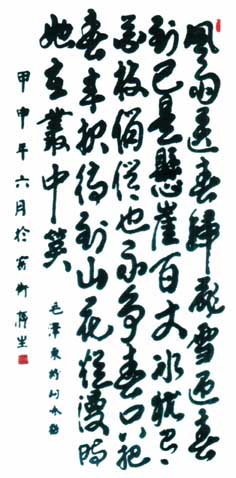 風雨送春歸飛雪迎春
到已是懸崖百丈冰猶有
花枝俏俏也不争春只把
春来报待到山花爛漫時
她在叢中笑
毛澤東
甲申年六月於